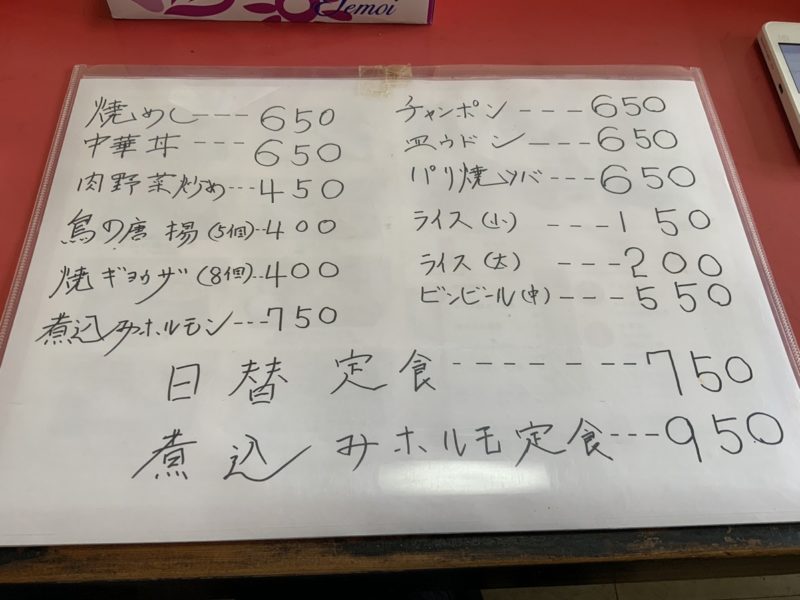 Elemoi
焼めし---650
中華丼---650
肉野菜炒め---450
鳥の唐揚(5個)--400
焼ギョウザ(8個)--400
煮込みホルモン---750
チャンポン---650
皿ウドン---650
パリ焼ソバ---650
ライス(小)---150
ライス(大)---200
ビンビール(中)---550
日替定食-------750
煮込みホルモ定食---950